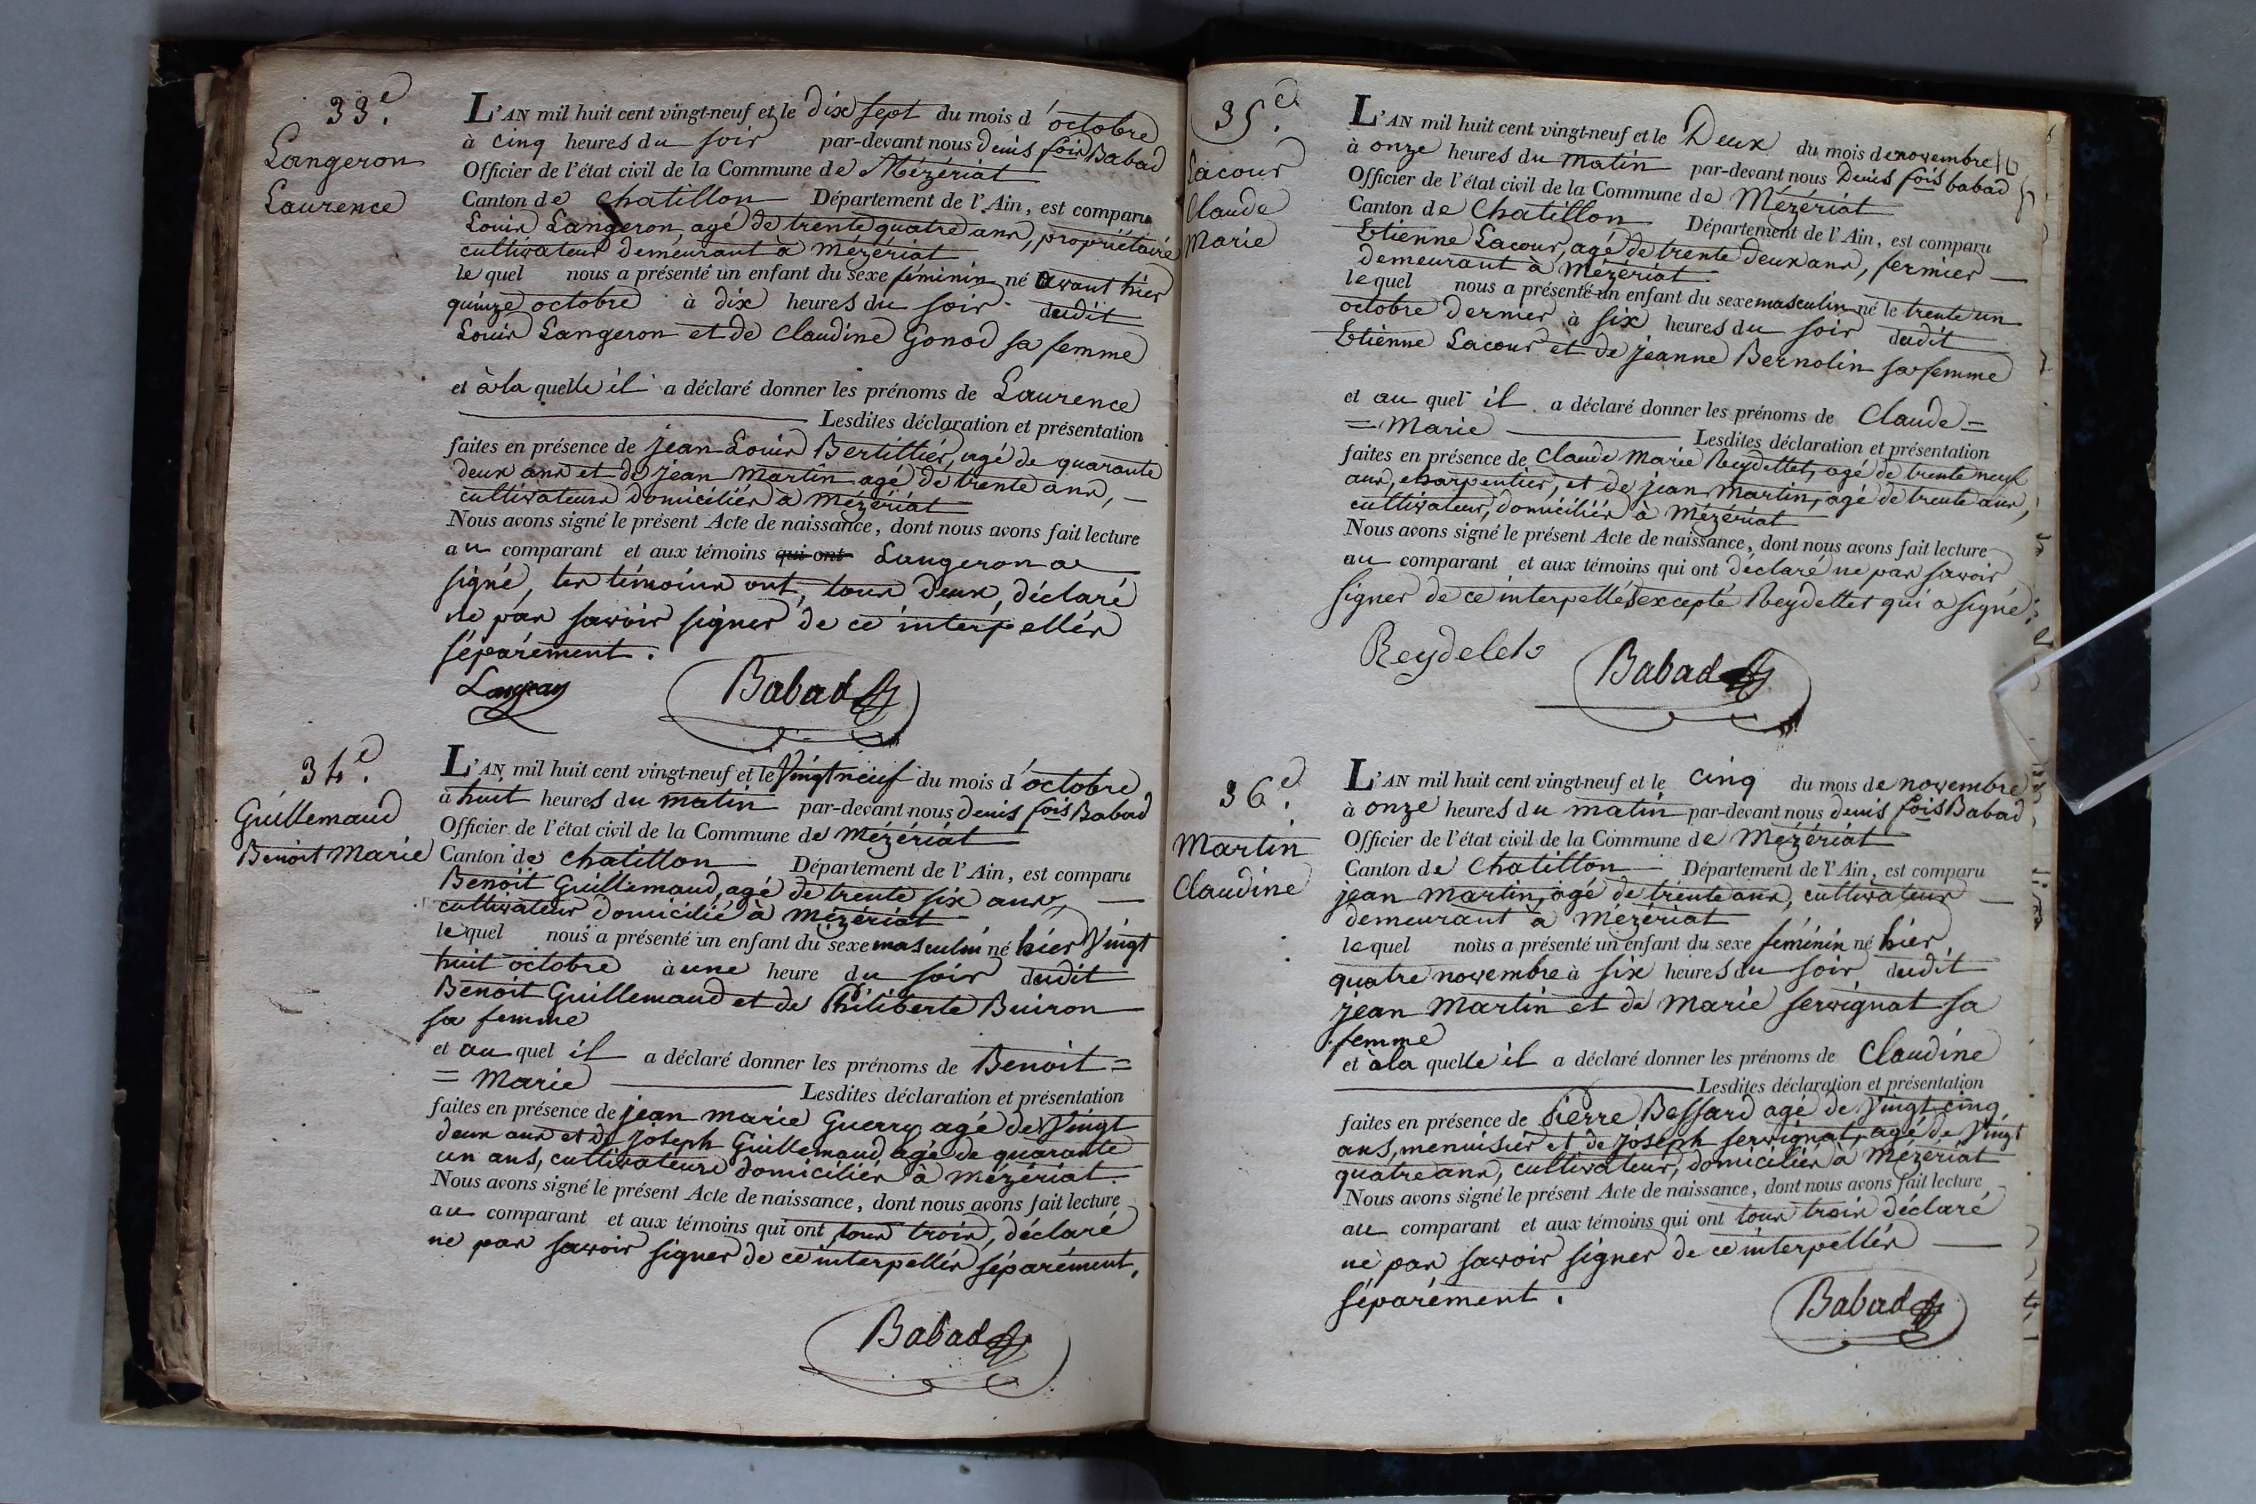 33e.
Langeron
Laurence
L'AN mil huit cent vingt-neuf et le dix sept du mois d'octobre
à cinq heures du soir par-devant nous denis fois Babad
Officier de l'état civil de la Commune de Mézériat
Canton de chatillon Département de l'Ain, est comparu
Louis Langeron, agé de trente quatre ans, propriétaire
cultivateur demeurant à Mézériat
lequel nous a présenté un enfant du sexe féminin né avant hier
quinze octobre à dix heures du soir dudit
Louis Langeron et de Claudine Gonod sa femme
et à la quelle il a déclaré donner les prénoms de Laurence
Lesdites déclaration et présentation
faites en présence de jean Louis Bertillier, agé de quarante
deux ans et de jean Martin agé de trente ans,
cultivateurs domiciliés à Mézériat
Nous avons signé le présent Acte de naissance, dont nous avons fait lecture
au comparant et aux témoins qui ont Langeron a
signé, les témoins ont, tous deux, déclaré
ne pas savoir signer de ce interpellés
séparément.
Babad
34e.
Guillemaud
Benoit Marie
L'AN mil huit cent vingt-neuf et le Vingt neuf du mois d'octobre
à huit heures du matin par-devant nous denis fois Babad
Officier de l'état civil de la Commune de Mézériat
Canton de chatillon Département de l'Ain, est comparu
Benoit Guillemaud, agé de trente six ans,
cultivateur domicilié à Mézériat
lequel nous a présenté un enfant du sexe masculin né hier Vingt
huit octobre à une heure du soir dudit
Benoit Guillemaud et de Philiberte Buiron
sa femme
et au quel il a déclaré donner les prénoms de Benoit=
=Marie Lesdites déclaration et présentation
faites en présence de jean marie Guerry agé de Vingt
deux ans et de joseph Guillemaud agé de quarante
un ans, cultivateurs domiciliés à Mézériat.
Nous avons signé le présent Acte de naissance, dont nous avons fait lecture
au comparant et aux témoins qui ont tous trois, déclaré
ne pas savoir signer de ce interpellés séparément.
Babad
35e.
Lacour
Claude
Marie
L'AN mil huit cent vingt-neuf et le Deux du mois de novembre
à onze heures du matin par-devant nous Denis fois babad
Officier de l'état civil de la Commune de Mézériat
Canton de Chatillon Département de l'Ain, est comparu
Etienne Lacour, agé de trente deux ans, fermier
demeurant à Mézériat
lequel nous a présenté un enfant du sexe masculin né le trente un
octobre dernier à six heures du soir dudit
Etienne Lacour et de jeanne Bernolin sa femme
et au quel il a déclaré donner les prénoms de Claude=
=Marie Lesdites déclaration et présentation
faites en présence de Claude Marie Reydellet, agé de trente neuf
ans, charpentier, et de jean Martin, agé de trente ans,
cultivateur, domiciliés à Mézériat
Nous avons signé le présent Acte de naissance, dont nous avons fait lecture
au comparant et aux témoins qui ont déclaré ne pas savoir
signer de ce interpellés excepté Reydellet qui a signé.
Reydelet
Babad
36e.
Martin
Claudine
L'AN mil huit cent vingt-neuf et le cinq du mois de novembre
à onze heures du matin par-devant nous denis fois Babad
Officier de l'état civil de la Commune de Mézériat
Canton de Chatillon Département de l'Ain, est comparu
jean Martin, agé de trente ans, cultivateur
demeurant à Mézériat
lequel nous a présenté un enfant du sexe féminin né hier,
quatre novembre à six heures du soir dudit
jean Martin et de Marie servignat sa
femme
et à la quelle il a déclaré donner les prénoms de Claudine
Lesdites déclaration et présentation
faites en présence de Pierre Bessard agé de Vingt cinq
ans, menuisier et de joseph servignat, agé de Vingt
quatre ans, cultivateur, domiciliés à Mézériat
Nous avons signé le présent Acte de naissance, dont nous avons fait lecture
au comparant et aux témoins qui ont tous trois déclaré
ne pas savoir signer de ce interpellés
séparément.
Babad